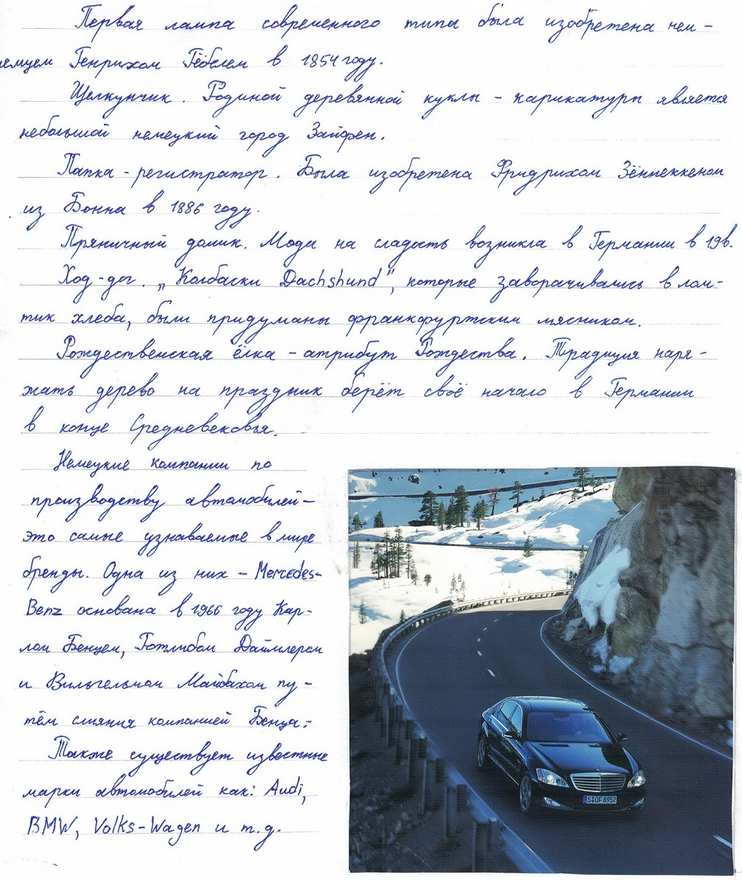 Первая лампа современного типа была изобретена нем-
емцем Генрихом Гёбелем в 1854 году.
Щелкунчик. Родиной деревянной куклы - карикатуры является
небольшой немецкий город Зайфен.
Папка - регистратор. Была изобретена Фридрихом Зённеккеном
из Бонна в 1886 году.
Пряничный домик. Мода на сладость возникла в Германии в 19в.
Ход-дог. „Колбаски Dachshund", которые заворачивались в лом-
тик хлеба, были придуманы франкфуртским мясником.
Рождественская ёлка - атрибут Рождества. Традиция наря-
жать дерево на праздник берёт своё начало в Германии
в конце Средневековья.
Немецкие компании по
производству автомобилей -
это самые узнаваемые в мире
бренды. Одна из них - Mercedes-
Benz основана в 1966 году Кар-
лом Бенцем, Готлибом Даймлером
и Вильгельмом Майбахом пу-
тём слияния компанией Бенца.
Также существует известные
марки автомобилей как: Audi,
BMW, Volks-Wagen и т.д.